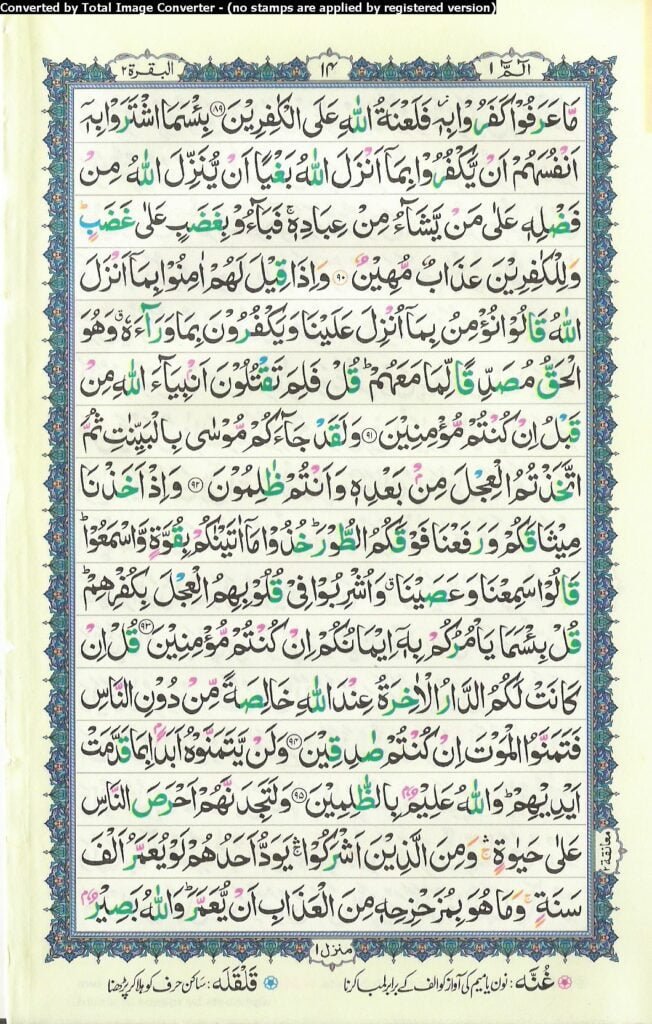 Converted by Total Image Converter - (no stamps are applied by registered version)
الٓمّٓ ۱
۱۴
البقرة ۲
مَّا عَرَفُوۡا کَفَرُوۡا بِہٖ ۫ فَلَعۡنَۃُ اللّٰہِ عَلَی الۡکٰفِرِیۡنَ ﴿۸۹﴾ بِئۡسَمَا اشۡتَرَوۡا بِہٖۤ
اَنۡفُسَہُمۡ اَنۡ یَّکۡفُرُوۡا بِمَاۤ اَنۡزَلَ اللّٰہُ بَغۡیًا اَنۡ یُّنَزِّلَ اللّٰہُ مِنۡ
فَضۡلِہٖ عَلٰی مَنۡ یَّشَآءُ مِنۡ عِبَادِہٖ ۚ فَبَآءُوۡ بِغَضَبٍ عَلٰی غَضَبٍ ؕ
وَ لِلۡکٰفِرِیۡنَ عَذَابٌ مُّہِیۡنٌ ﴿۹۰﴾ وَ اِذَا قِیۡلَ لَہُمۡ اٰمِنُوۡا بِمَاۤ اَنۡزَلَ
اللّٰہُ قَالُوۡا نُؤۡمِنُ بِمَاۤ اُنۡزِلَ عَلَیۡنَا وَ یَکۡفُرُوۡنَ بِمَا وَرَآءَہٗ ٭ وَ ہُوَ
الۡحَقُّ مُصَدِّقًا لِّمَا مَعَہُمۡ ؕ قُلۡ فَلِمَ تَقۡتُلُوۡنَ اَنۡۢبِیَآءَ اللّٰہِ مِنۡ
قَبۡلُ اِنۡ کُنۡتُمۡ مُّؤۡمِنِیۡنَ ﴿۹۱﴾ وَ لَقَدۡ جَآءَکُمۡ مُّوۡسٰی بِالۡبَیِّنٰتِ ثُمَّ
اتَّخَذۡتُمُ الۡعِجۡلَ مِنۡۢ بَعۡدِہٖ وَ اَنۡتُمۡ ظٰلِمُوۡنَ ﴿۹۲﴾ وَ اِذۡ اَخَذۡنَا
مِیۡثَاقَکُمۡ وَ رَفَعۡنَا فَوۡقَکُمُ الطُّوۡرَ ؕ خُذُوۡا مَاۤ اٰتَیۡنٰکُمۡ بِقُوَّۃٍ وَّ اسۡمَعُوۡا ؕ
قَالُوۡا سَمِعۡنَا وَ عَصَیۡنَا ٭ وَ اُشۡرِبُوۡا فِیۡ قُلُوۡبِہِمُ الۡعِجۡلَ بِکُفۡرِہِمۡ ؕ
قُلۡ بِئۡسَمَا یَاۡمُرُکُمۡ بِہٖۤ اِیۡمَانُکُمۡ اِنۡ کُنۡتُمۡ مُّؤۡمِنِیۡنَ ﴿۹۳﴾ قُلۡ اِنۡ
کَانَتۡ لَکُمُ الدَّارُ الۡاٰخِرَۃُ عِنۡدَ اللّٰہِ خَالِصَۃً مِّنۡ دُوۡنِ النَّاسِ
فَتَمَنَّوُا الۡمَوۡتَ اِنۡ کُنۡتُمۡ صٰدِقِیۡنَ ﴿۹۴﴾ وَ لَنۡ یَّتَمَنَّوۡہُ اَبَدًۢا بِمَا قَدَّمَتۡ
اَیۡدِیۡہِمۡ ؕ وَ اللّٰہُ عَلِیۡمٌۢ بِالظّٰلِمِیۡنَ ﴿۹۵﴾ وَ لَتَجِدَنَّہُمۡ اَحۡرَصَ النَّاسِ
عَلٰی حَیٰوۃٍ ۚۛ وَ مِنَ الَّذِیۡنَ اَشۡرَکُوۡا ۚۛ یَوَدُّ اَحَدُہُمۡ لَوۡ یُعَمَّرُ اَلۡفَ
معانقة ۲
سَنَۃٍ ۚ وَ مَا ہُوَ بِمُزَحۡزِحِہٖ مِنَ الۡعَذَابِ اَنۡ یُّعَمَّرَ ؕ وَ اللّٰہُ بَصِیۡرٌۢ
منزل ۱
غُنَّه: نون یا میم کی آواز کو الف کے برابر لمبا کرنا
قَلْقَلَه: ساکن حرف کو ہلا کر پڑھنا